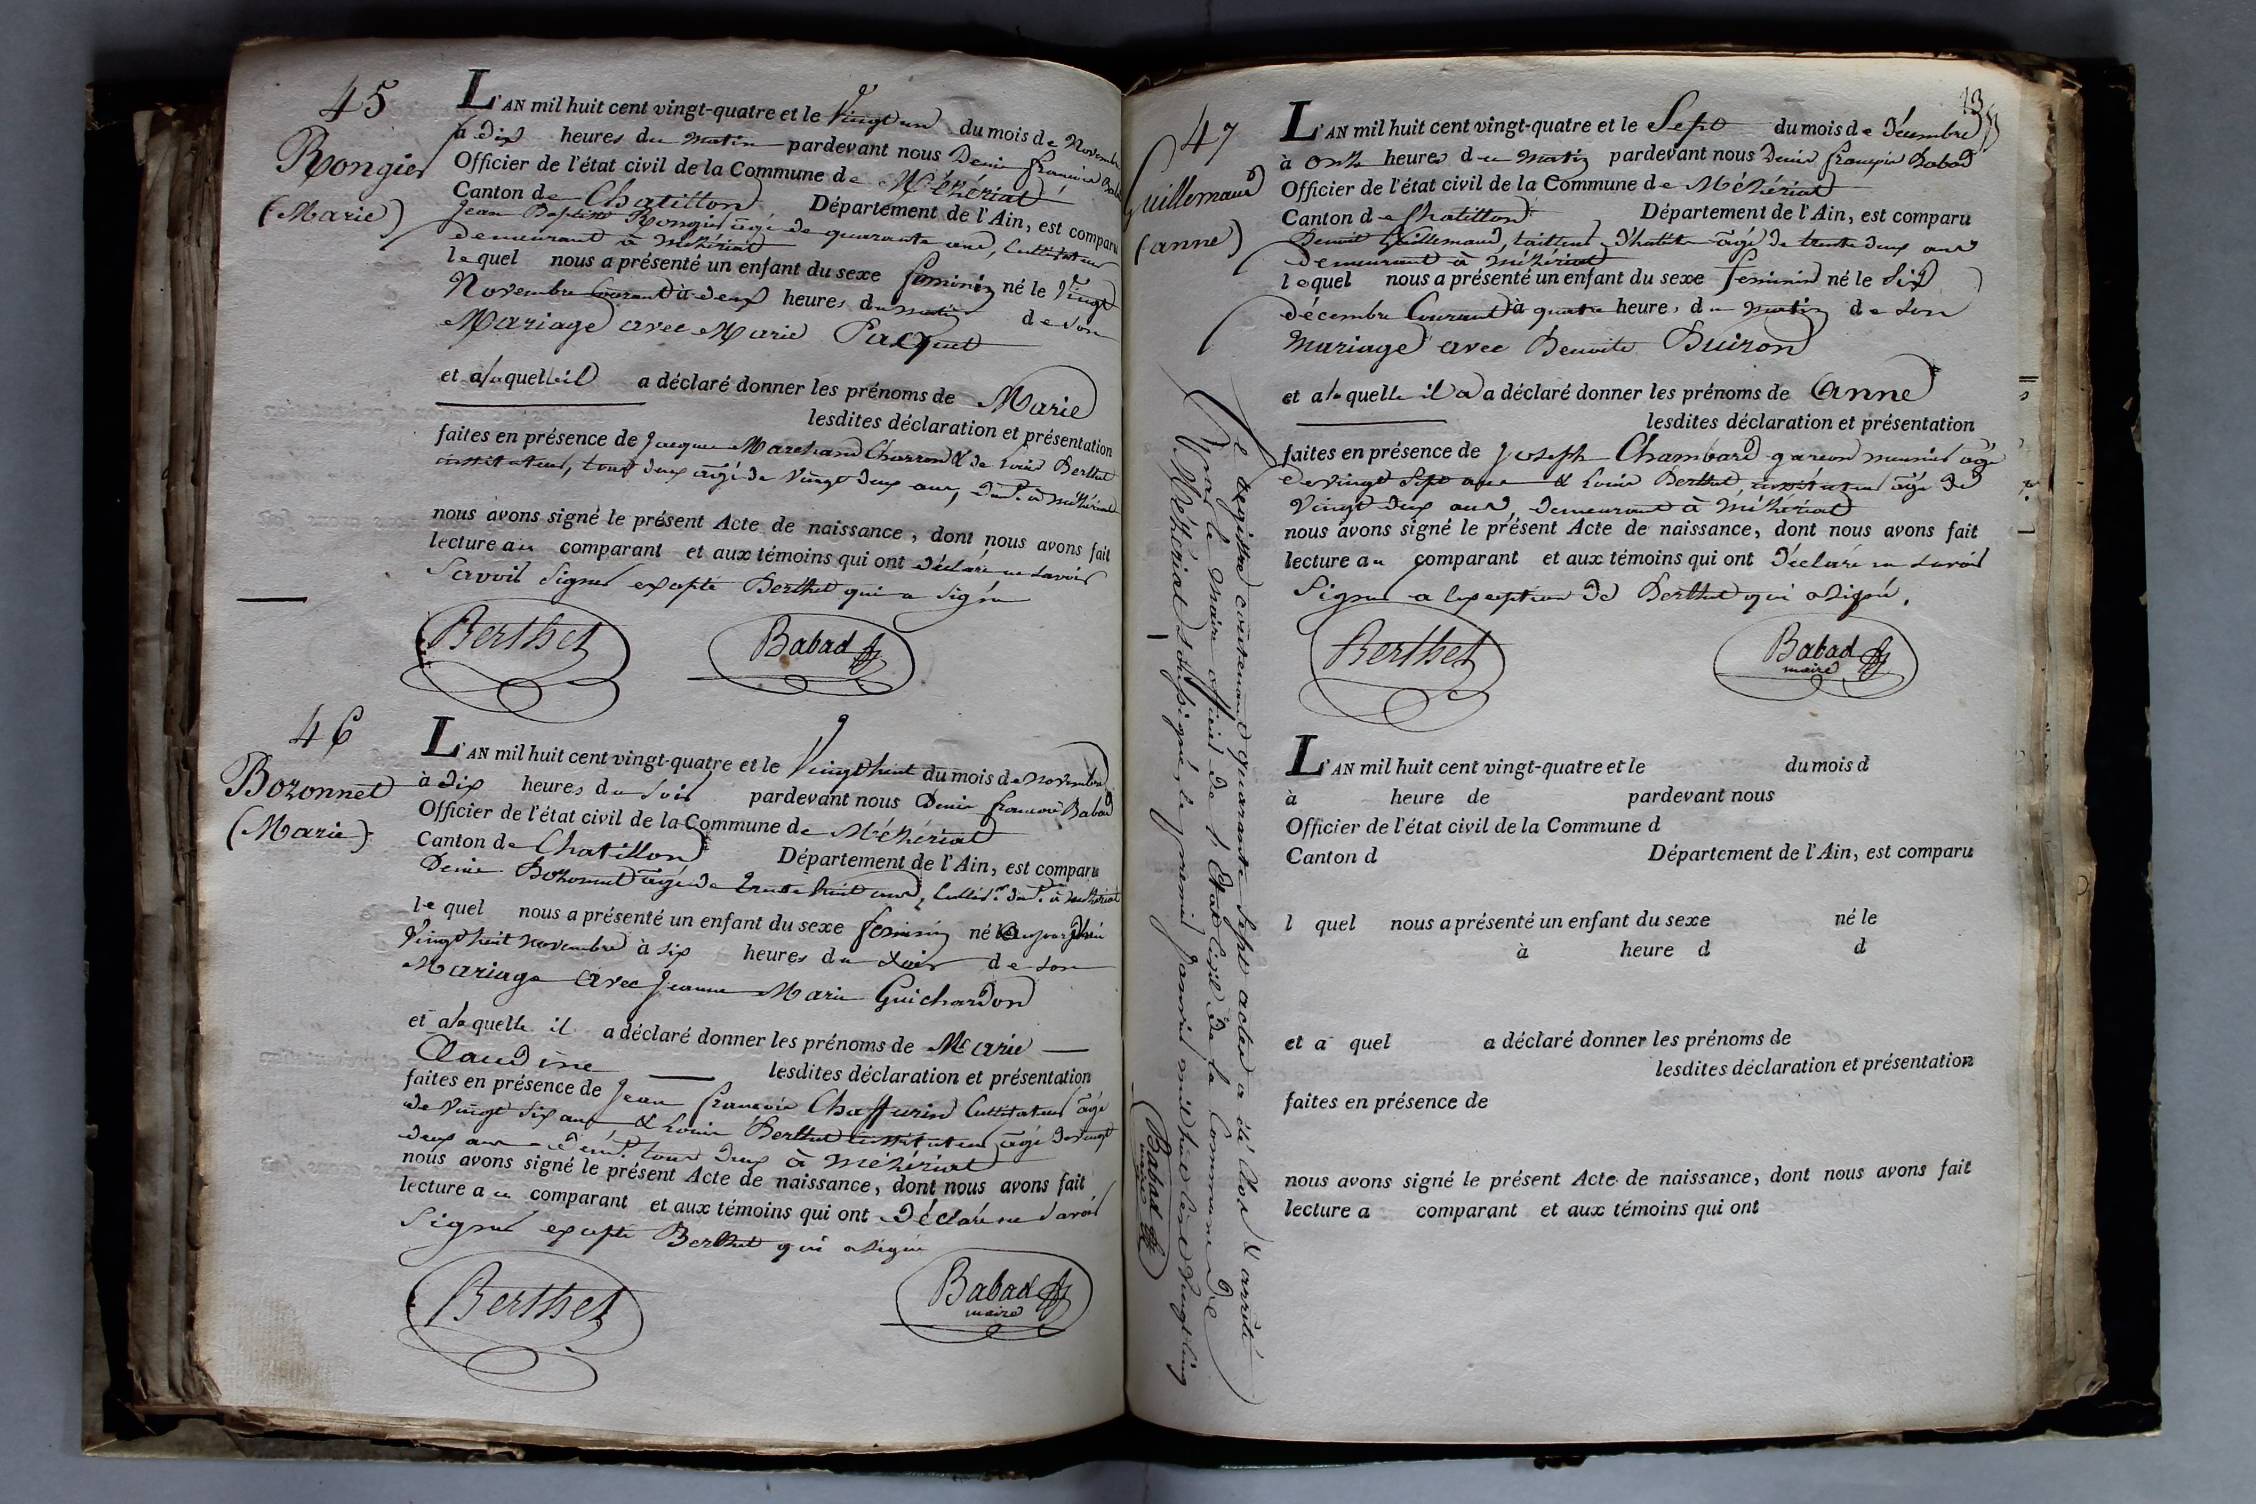 45
Rongier
(Marie)
L'AN mil huit cent vingt-quatre et le Vingt un du mois de Novembre
à dix heures du matin pardevant nous Denis françois Babad
Officier de l'état civil de la Commune de Mézériat
Canton de Chatillon Département de l'Ain, est comparu
Jean Baptiste Rongier âgé de quarante ans, Cultivateur
demeurant à Mézériat
lequel nous a présenté un enfant du sexe féminin né le Vingt
Novembre Courant à deux heures du matin de son
Mariage avec Marie Pacquet
et a laquelle il a déclaré donner les prénoms de Marie
lesdites déclaration et présentation
faites en présence de Jacques Marchand Charron & de Louis Berthet
instituteur, tous deux âgé de Vingt deux ans, demt. à Mézériat
nous avons signé le présent Acte de naissance, dont nous avons fait
lecture au comparant et aux témoins qui ont déclaré ne savoir
Savoir Signer excepté Berthet qui a signé
Berthet Babad
46
Bozonnet
(Marie)
L'AN mil huit cent vingt-quatre et le Vingt huit du mois de novembre
à dix heures du soir pardevant nous Denis françois Babad
Officier de l'état civil de la Commune de Mézériat
Canton de Chatillon Département de l'Ain, est comparu
Denis Bozonnet âgé de trente huit ans, Cultivr. demt. à Mézériat
lequel nous a présenté un enfant du sexe féminin né le aujourd'hui
Vingt huit novembre à six heures du soir de son
Mariage avec Jeanne Marie Guichardon
et a laquelle il a déclaré donner les prénoms de Marie
Claudine lesdites déclaration et présentation
faites en présence de Jean françois Chaffurin Cultivateur âgé
de Vingt Six ans & Louis Berthet instituteur âgé de vingt
deux ans demt. tous deux à Mézériat
nous avons signé le présent Acte de naissance, dont nous avons fait
lecture au comparant et aux témoins qui ont déclaré ne savoir
Signer excepté Berthet qui a signé
Berthet Babad
maire
47
Guillemaud
(anne)
L'AN mil huit cent vingt-quatre et le Sept du mois de décembre
à onze heures du matin pardevant nous Denis françois Babad
Officier de l'état civil de la Commune de Mézériat
Canton de Chatillon Département de l'Ain, est comparu
Benoit Guillemaud, tailleur d'habits âgé de trente deux ans
demeurant à Mézériat
lequel nous a présenté un enfant du sexe féminin né le Six
décembre Courant à quatre heures du matin de son
Mariage avec Benoite Buizon
et a laquelle il a a déclaré donner les prénoms de Anne
lesdites déclaration et présentation
faites en présence de Joseph Chambard garçon meunier âgé
de vingt Sept ans & Louis Berthet instituteur âgé de
Vingt deux ans, demeurant à Mézériat
nous avons signé le présent Acte de naissance, dont nous avons fait
lecture au comparant et aux témoins qui ont déclaré ne savoir
Signer a l'exception de Berthet qui a signé.
Berthet Babad
maire
Le registre contenant quarante Sept actes a été Clos & arrêté
par le maire officier de l'Etat Civil de la Commune de
Mézériat Soussigné, le premier Janvier mil huit cent Vingt Cinq
Babad
maire
L'AN mil huit cent vingt-quatre et le du mois d
à heure de pardevant nous
Officier de l'état civil de la Commune d
Canton d Département de l'Ain, est comparu
l quel nous a présenté un enfant du sexe né le
à heure d d
et a quel a déclaré donner les prénoms de
lesdites déclaration et présentation
faites en présence de
nous avons signé le présent Acte de naissance, dont nous avons fait
lecture a comparant et aux témoins qui ont